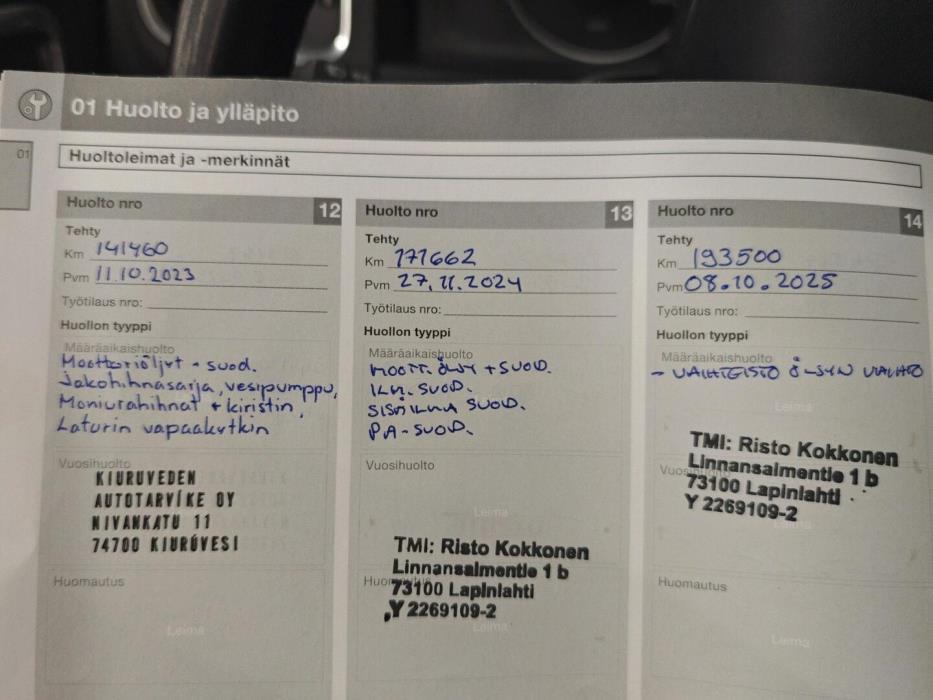 01 Huolto ja ylläpito
01
Huoltoleimat ja -merkinnät
Huolto nro 12
Tehty
Km 141460
Pvm 11.10.2023
Työtilaus nro:
Huollon tyyppi
Määräaikaishuolto
Moottoriöljyt + suod.
Jakohihnasarja, vesipumppu,
Moniurahihnat + kiristin,
Laturin vapaakytkin
Vuosihuolto
KIURUVEDEN
AUTOTARVIKE OY
NIVANKATU 11
74700 KIURUVESI
Huomautus
Leima
Huolto nro 13
Tehty
Km 171662
Pvm 27.11.2024
Työtilaus nro:
Huollon tyyppi
Määräaikaishuolto
MOOTT. ÖLJY + SUOD.
ILM. SUOD.
SISÄILMA SUOD.
PA-SUOD.
Vuosihuolto
Leima
TMI: Risto Kokkonen
Linnansalmentie 1 b
Huomautus
73100 Lapinlahti
Y 2269109-2
Leima
Huolto nro 14
Tehty
Km 193500
Pvm 08.10.2025
Työtilaus nro:
Huollon tyyppi
Määräaikaishuolto
- VAIHTEISTO ÖLJYN VAIHTO
Leima
TMI: Risto Kokkonen
Linnansalmentie 1 b
73100 Lapinlahti
Y 2269109-2
Leima
Huomautus
Leima